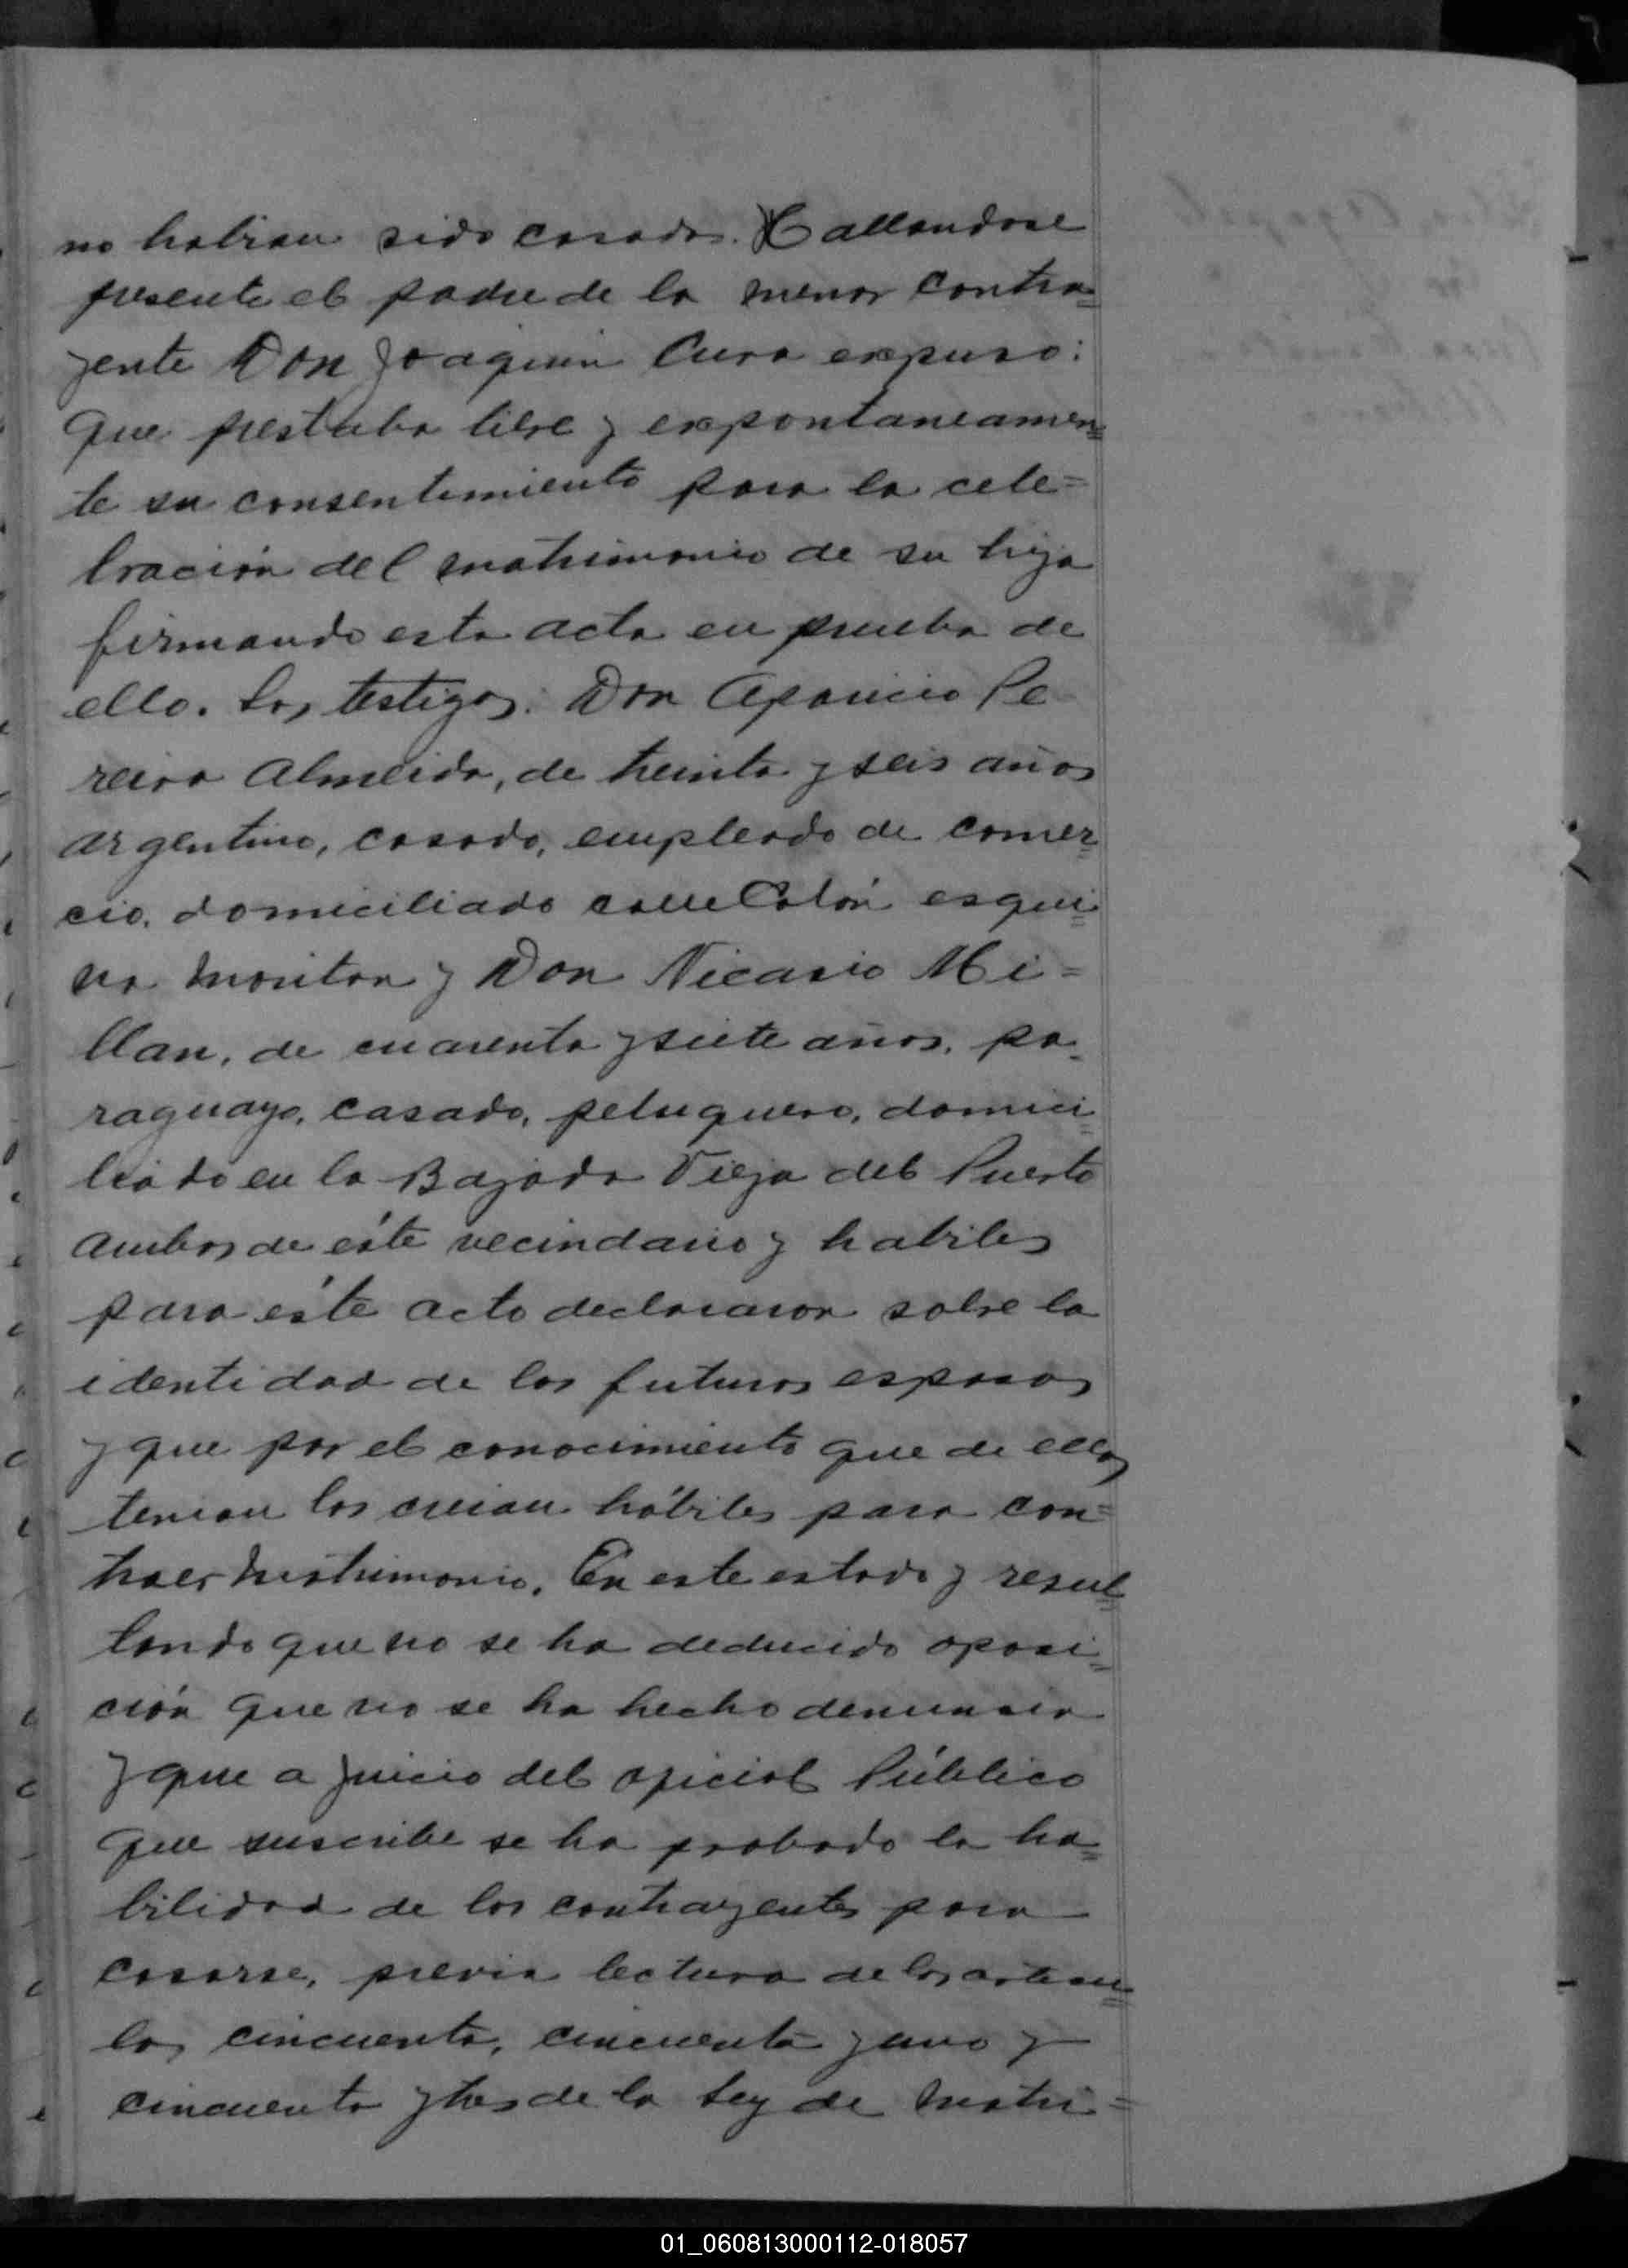 no habian sido casados. Hallandose
presente el padre de la menor contra=
yente Don Joaquin Cura expuso:
que prestaba libre y expontaneamen=
te su consentimiento para la cele=
bración del matrimonio de su hija
firmando esta acta en prueba de
ello. Los testigos: Don Aparicio Pe
reira Almeida, de treinta y seis años
argentino, casado, empleado de comer=
cio, domiciliado calle Colón esqui=
na y Don Nicasio Mi=
llan, de cuarenta y siete años, pa=
raguayo, casado, peluquero, domici=
liado en la Bajada Vieja del Puerto
ambos de éste vecindario y habiles
para éste acto declararon sobre la
identidad de los futuros esposos
y que por el conocimiento que de ellos
tenian los creian hábiles para con=
traer matrimonio. En este estado y resul=
tando que no se ha deducido oposi=
ción que no se ha hecho denuncia
y que a juicio del oficial Público
que suscribe se ha probado la ha=
bilidad de los contrayentes para
casarse, previa lectura de los articu=
los cincuenta, cincuenta y uno y
cincuenta y tres de la Ley de Matri=
01_060813000112-018057